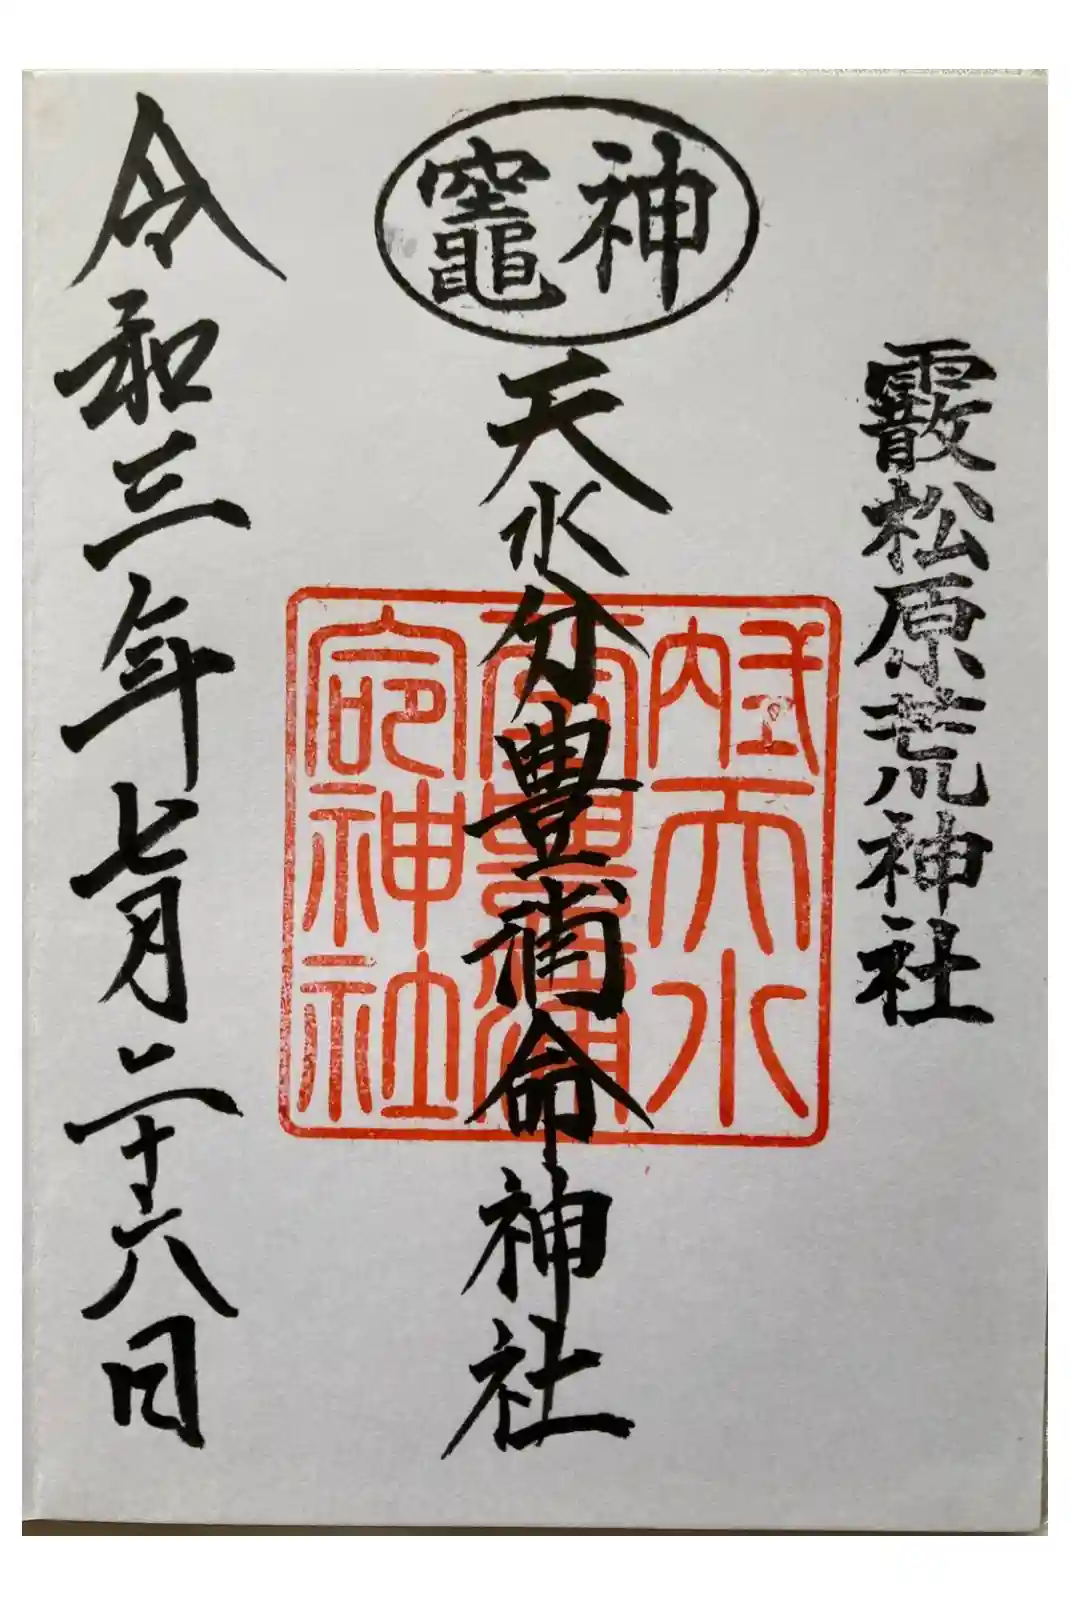 霰松原荒神社
神竈
天水分豊浦命神社
式内天水
命神社
令和三年七月二十六日